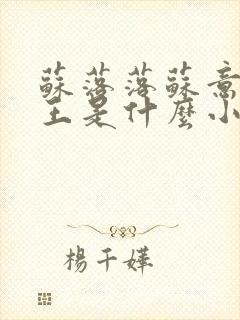 蘇落落蘇意
王是什麼小
楊千嬅